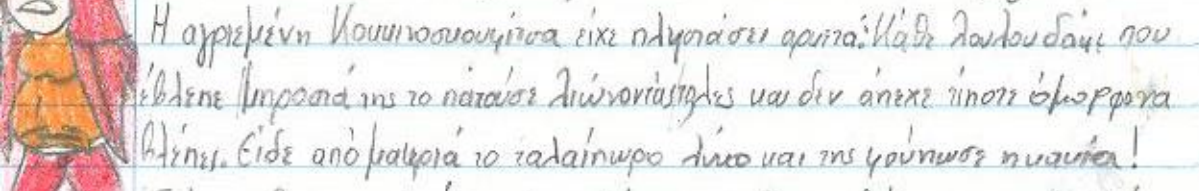 Η αγριεμένη Κοκκινοσκουφίτσα είχε πλησιάσει αρκετά. Κάθε λουλουδάκι που
έβλεπε μπροστά της το πατούσε λιώνοντάς το και δεν άπεχε τίποτε όμορφο να
βλέπει. Είδε από μακριά το ταλαίπωρο λύκο και της φούντωσε η κακία!